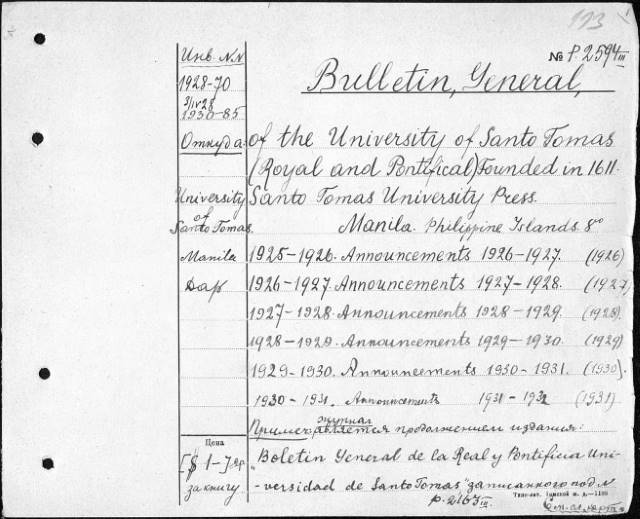 123
№ P. 2594 III
Инв. N.N
1928-70
3/IV 28
1930-85
Откуда:
University
of
Santo Tomas.
Manila
Дар
Цена
[$ 1-72р
за книгу
Bulletin, General,
of the University of Santo Tomas
(Royal and Pontifical) Founded in 1611.
Santo Tomas University Press.
Manila. Philippine Islands. 8°
1925-1926. Announcements 1926-1927. (1926)
1926-1927. Announcements 1927-1928. (1927)
1927-1928. Announcements 1928-1929. (1928).
1928-1929. Announcements 1929-1930. (1929)
1929-1930. Announcements 1930-1931. (1930).
1930-1931. Announcements 1931-1932 (1931)
журнал
Примеч. является продолжением издания:
"Boletin General de la Real y Pontificia Uni-
-versidad de Santo Tomas" записанного под №
P. 2163 III